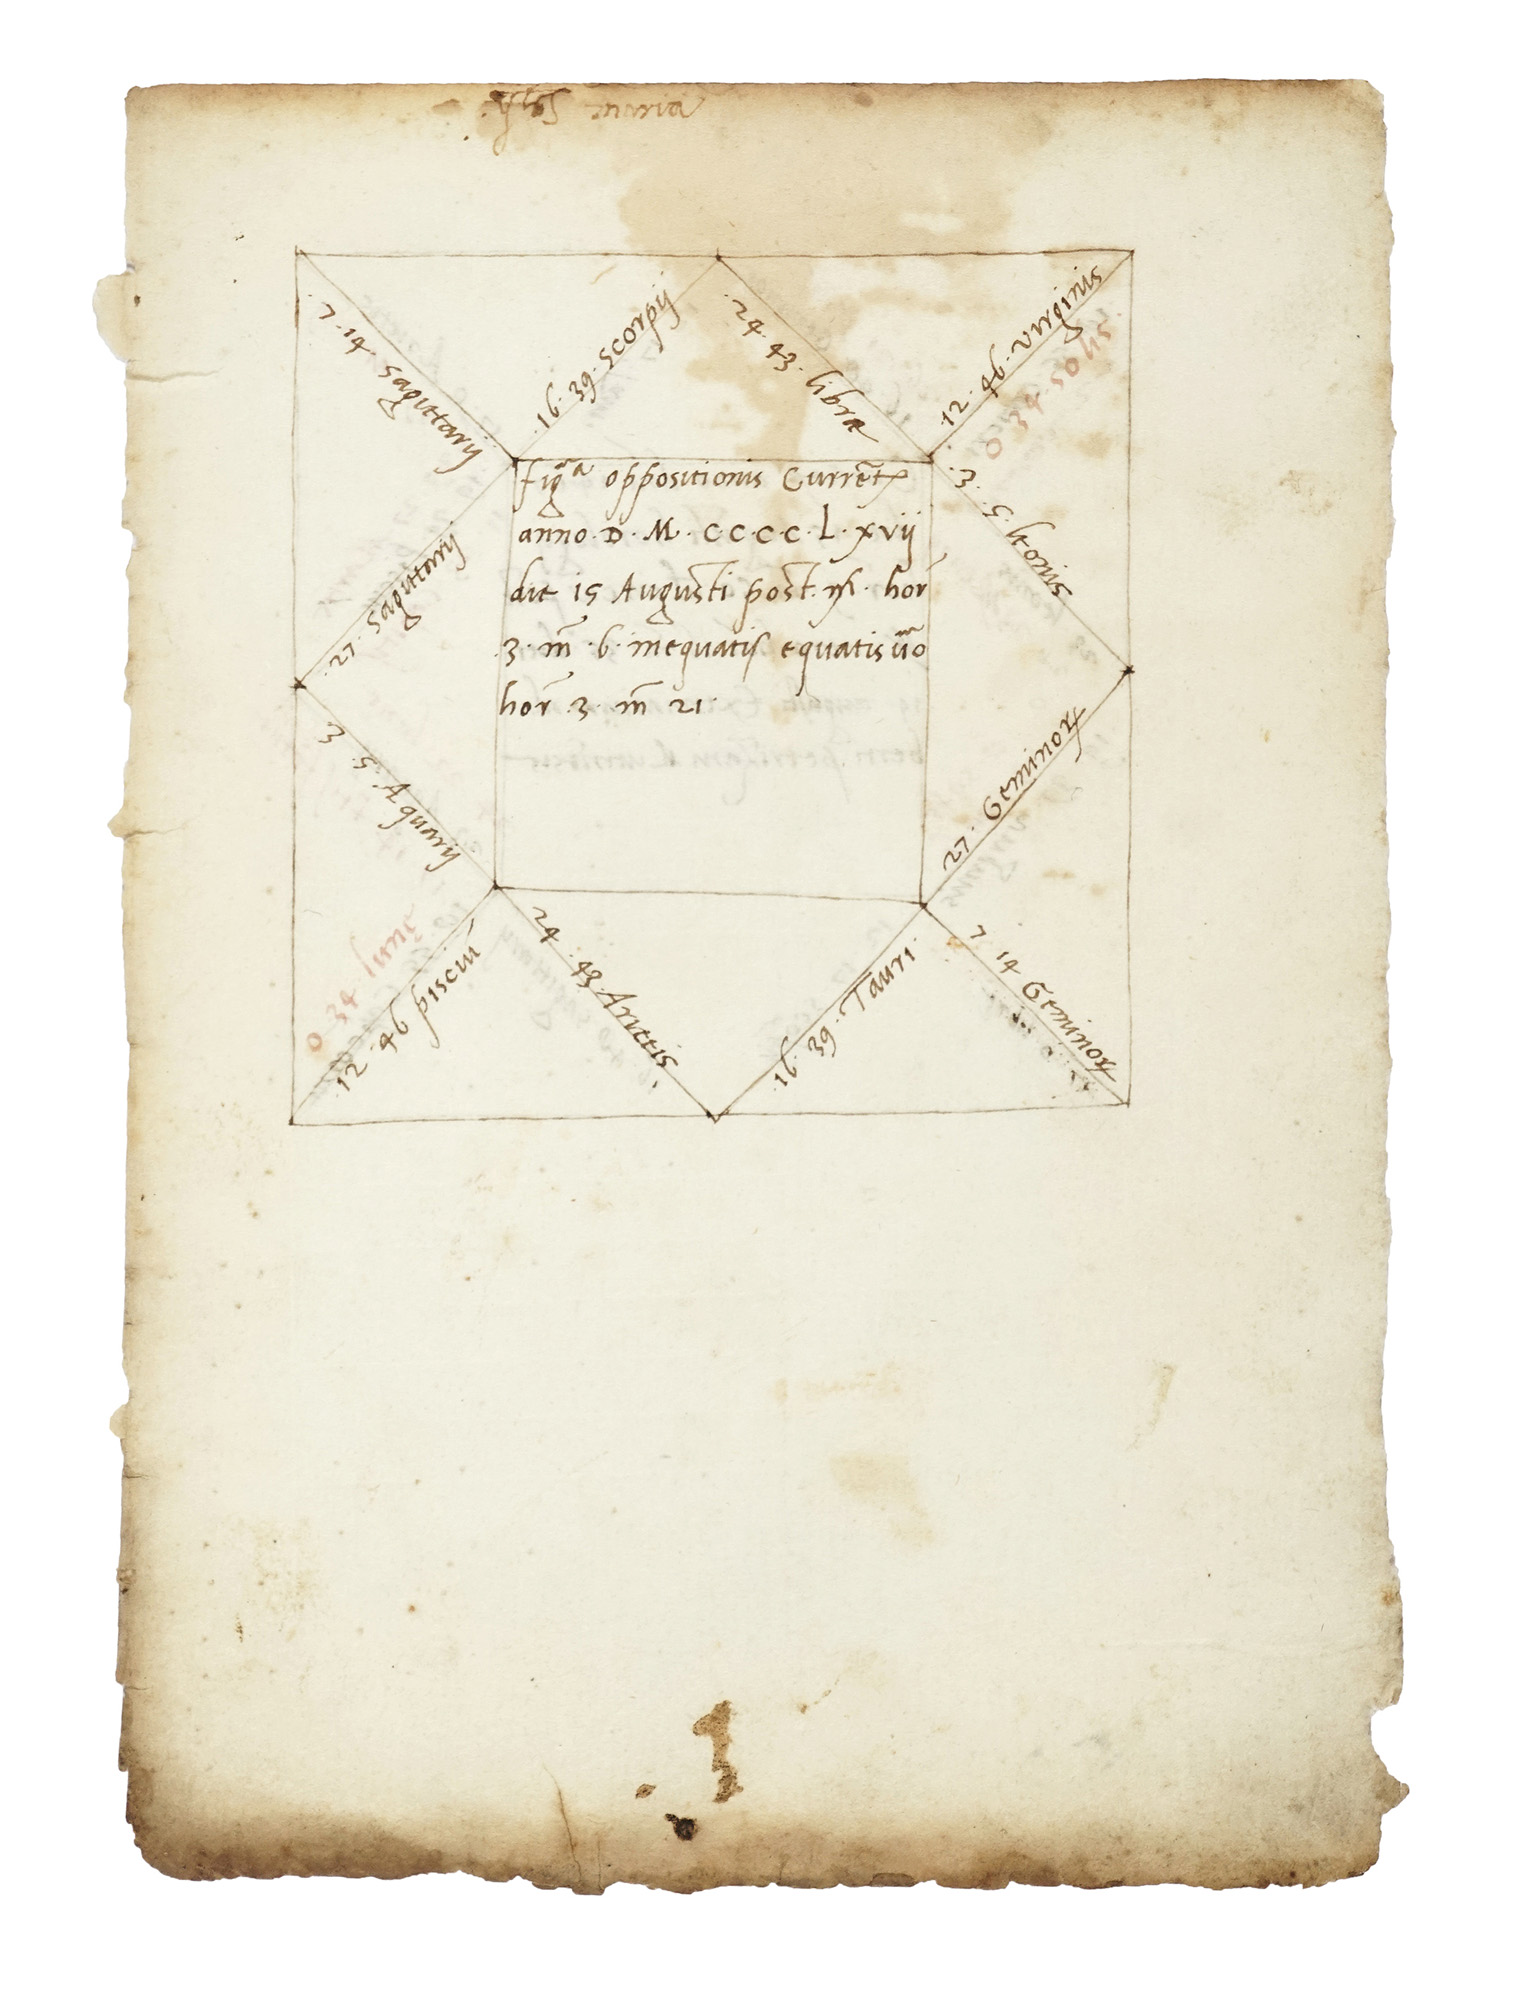 maria
7 · 14 · sagittarij
16 · 39 · scorpij
24 · 43 · libræ
12 · 46 · virginis
0 34 solis
3 · 5 · leonis
27 · sagittarij
figᵃ oppositionis Current͛
anno · D · M · C·C·C·C · L · xvij
die 15 Augusti post · · hor̄
3 · m̄ · 6 · inequatis equatis ūo
hor̄ · 3 · m̄ 21 ·
3 · 5 · Aquarij
27 · Geminoꝝ
0 34 lune
12 · 46 pisciū
24 · 43 · Arietis
16 · 39 · Tauri
7 14 Geminoꝝ